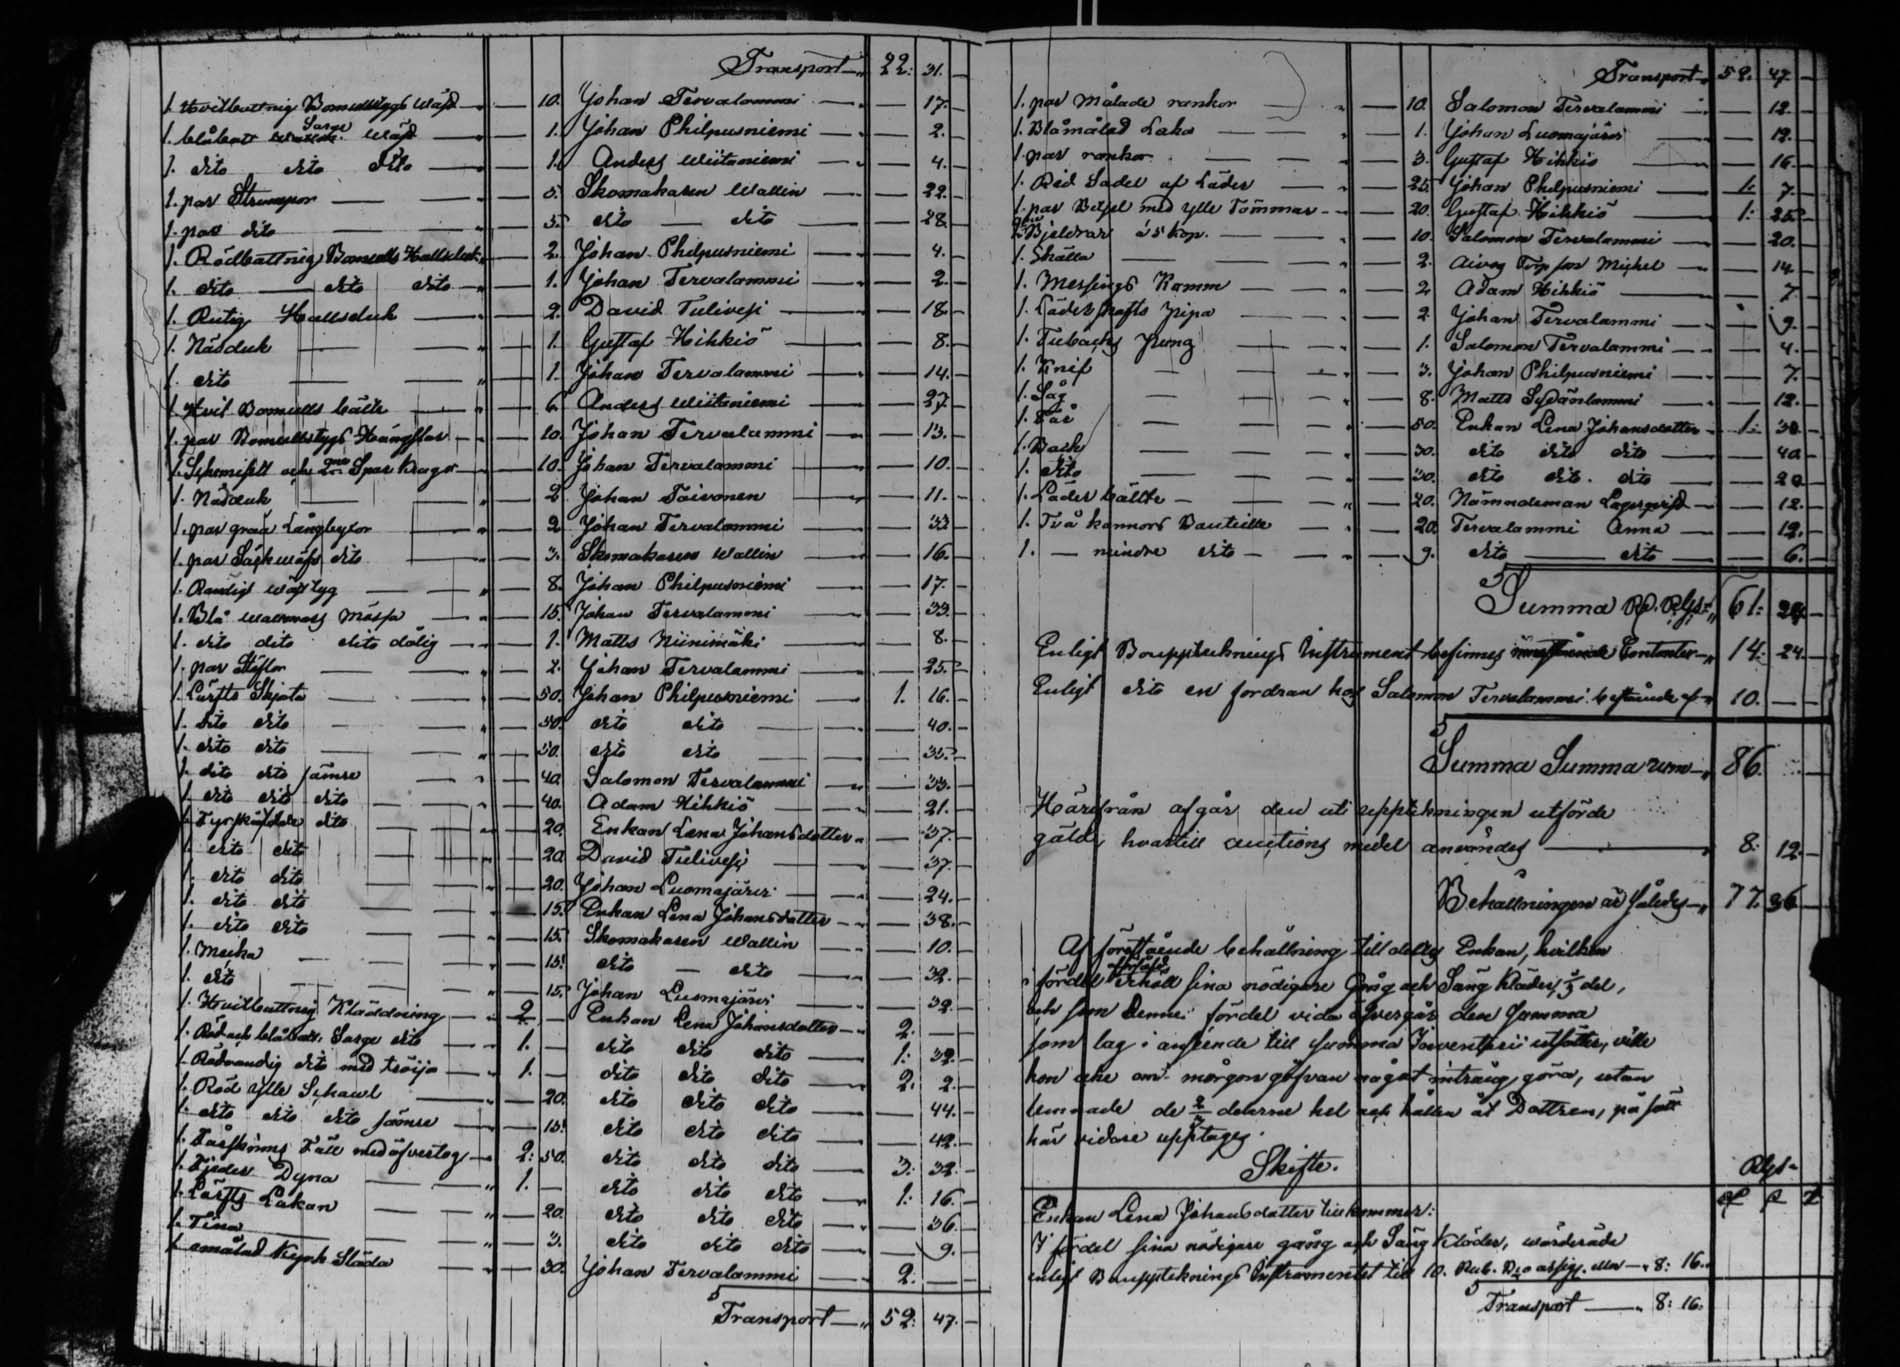 Transport 22: 31.
1. Hvitbattnig Bomullstygs Wäst 10. Johan Tervalammi 17.
1. blåbatt Sarge Wäst 1. Johan Philpusniemi 2.
1. dito dito dito 1. Anders Wiitaniemi 4.
1. par Strumpor 5. Skomakaren Wallin 22.
1. par dito 5. dito dito 28.
1. Rödbattnig Bomulls Hallsduk 2. Johan Philpusniemi 4.
1. dito dito dito 1. Johan Tervalammi 2.
1. Rutig Hallsduk 2. David Tulivesi 18.
1. Näsduk 1. Gustaf Hikkiö 8.
1. dito 1. Johan Tervalammi 14.
1. Hvit Bomulls bälte 6. Anders Wiitaniemi 27.
1. par Bomullstygs Hängslor 10. Johan Tervalammi 13.
1. och Spar Kragar 10. Johan Tervalammi 10.
1. Näsduk 2. Johan Toivonen 11.
1. par gråa Långbyxor 2. Johan Tervalammi 33.
1. par dito 3. Skomakaren Wallin 16.
1. Randigt Wästtyg 8. Johan Philpusniemi 17.
1. Blå Wallmars Mössa 15. Johan Tervalammi 33.
1. dito dito dito dålig 1. Matts Niinimäki 8.
1. par Stöflor 2. Johan Tervalammi 25.
1. Lärfts Skjorta 50. Johan Philpusniemi 1. 16.
1. dito dito 50. dito dito 40.
1. dito dito 50. dito dito 35.
1. dito dito sämre 40. Salomon Tervalammi 33.
1. dito dito dito 40. Adam Hikkiö 21.
1. dito 20. Enkan Lena Johansdotter 37.
1. dito dito 20. David Tulivesi 37.
1. dito dito 20. Johan Luomajärvi 24.
1. dito dito 15. Enkan Lena Johansdotter 38.
1. dito dito 15. Skomakaren Wallin 10.
1. Mecka 15. dito dito 32.
1. dito 15. Johan Luomajärvi 32.
1. Hvitbattnig Klädning 2. Enkan Lena Johansdotter 2.
1. Röd och blåbatt. Sarge dito 1. dito dito dito 1: 32.
1. Rödrandig dito med tröija 1. dito dito dito 2. 2.
1. Röd Ylle Schawl 20. dito dito dito 44.
1. dito dito dito sämre 15. dito dito dito 42.
1. Fårskinns Fäll med öfvertog 2: 50. dito dito dito 3: 32.
1. Fjeder Dyna 1. dito dito dito 1: 16.
1. Lärfts Lakan 20. dito dito dito 36.
1. Tina 3. dito dito dito 9.
1. omålad Kyrk Släda 30. Johan Tervalammi 2.
Transport 52: 47.
Transport 52: 47.
1. par Målade rankor 10. Salomon Tervalammi 12.
1. Blåmålad 1. Johan Luomajärvi 12.
1. par rankor 3. Gustaf Hikkiö 16.
1. Rid Sadel af Läder 25. Johan Philpusniemi 1: 7.
1. par Betsel med ylle Tömmar 20. Gustaf Hikkiö 1: 25.
Bjeldrar á 5 kop. 10. Salomon Tervalammi 20.
1. Skälla 2. Michel 14.
1. Messings Kamm 2. Adam Hikkiö 7.
1. Läder skafts pipa 2. Johan Tervalammi 9.
1. Tubacks pung 1. Salomon Tervalammi 4.
1. Knif 3. Johan Philpusniemi 7.
1. Såg 8. Matts Sydänlammi 12.
1. Får 50. Enkan Lena Johansdotter 1: 32.
1. Back 30. dito dito dito 40.
1. dito 30. dito dito dito 20.
1. Läder bälte 20. Nämndeman Lagerqvist 12.
1. Två kannors Bouteille 20. Tervalammi Anna 12.
1. mindre dito 9. dito dito 6.
Summa Rb. Rgs: 61: 24
Enligt Bouppteknings Instrument befinnes Contanter 14: 24.
Enligt dito en fordran hos Salomon Tervalammi bestående af 10.
Summa Summarum 86.
Härifrån afgår den uti uppteckningen utförde
gäld, hvartill auctions medel användes 8: 12.
Behållningen är således 77. 36
Af föregående behållning tilldelas Enkan, hvilken
i fördel erhåll sina nödigare Gång och Säng Kläder, 1/3 del,
och som denne fördel vida öfvergår den Summa
som lag i anseende till Summa Inventarii utsätter, ville
hon icke om morgongåfvan något intrång göra, utan
lemnade de 2/3 delarne hel och hållen åt Dottren, på sätt
här vidare upptages.
Skifte.
Enkan Lena Johansdotter tillkommer:
I fördel sina nödigare gång och Säng Kläder, wärderade
enligt Bouppteknings Instrumentet till 10. Rub. Bco assign. eller 8: 16.
Transport 8: 16.